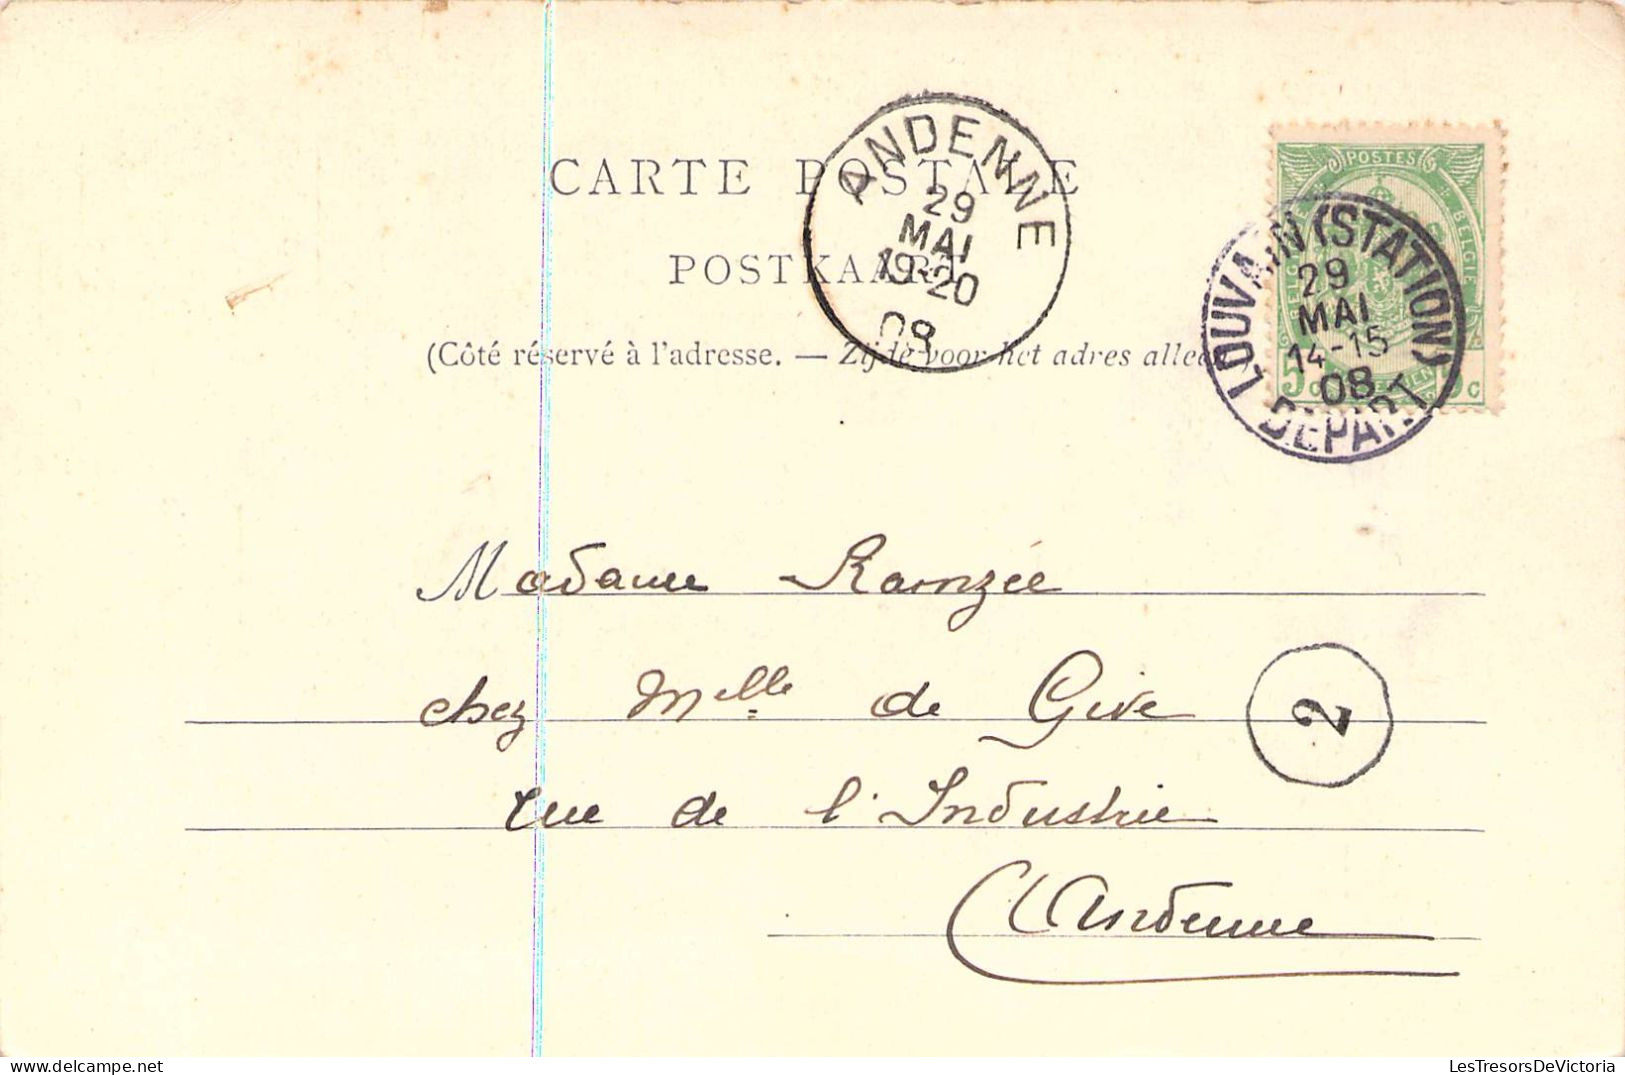 CARTE POSTALE
POSTKAART
(Côté réservé à l'adresse. — Zijde voor het adres alleen
ANDENNE
29
MAI
19-20
08
POSTES
BELGIQUE
5 C
LOUVAIN (STATION)
29
MAI
14-15
08
DEPART
Madame Ramzée
chez Melle de Give
2
rue de l'Industrie
Andenne
LesTresorsDeVictoria